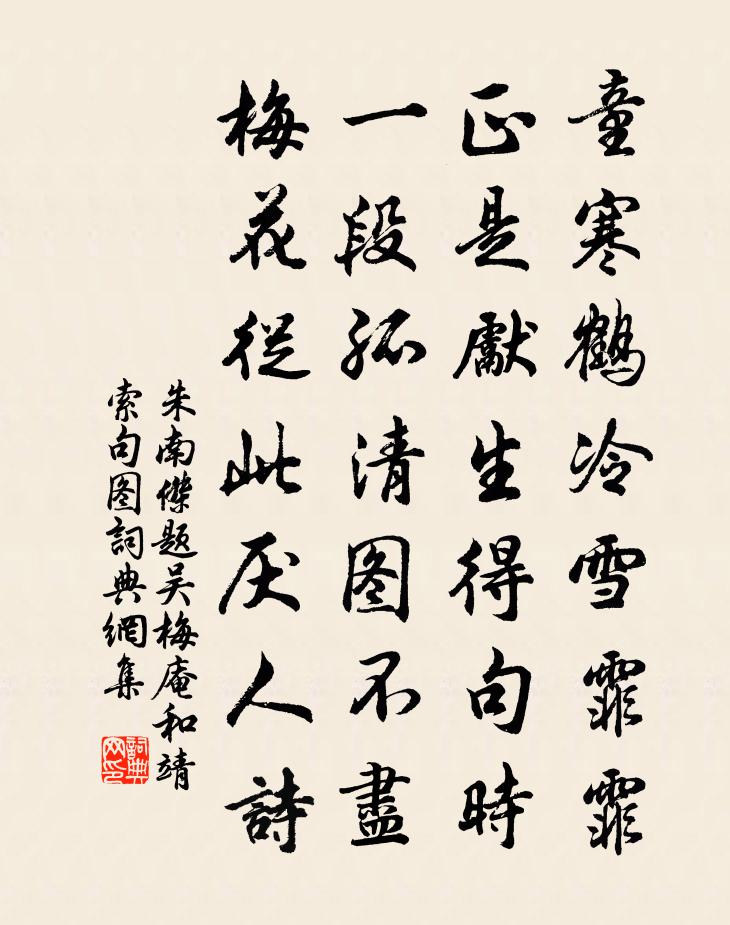 童寒鶴冷雪霏霏
正是獻生得句時
一段孤清图不盡
梅花從此厌人詩
朱南傑题吴梅庵和靖
索句图詞典網集
詞典网印